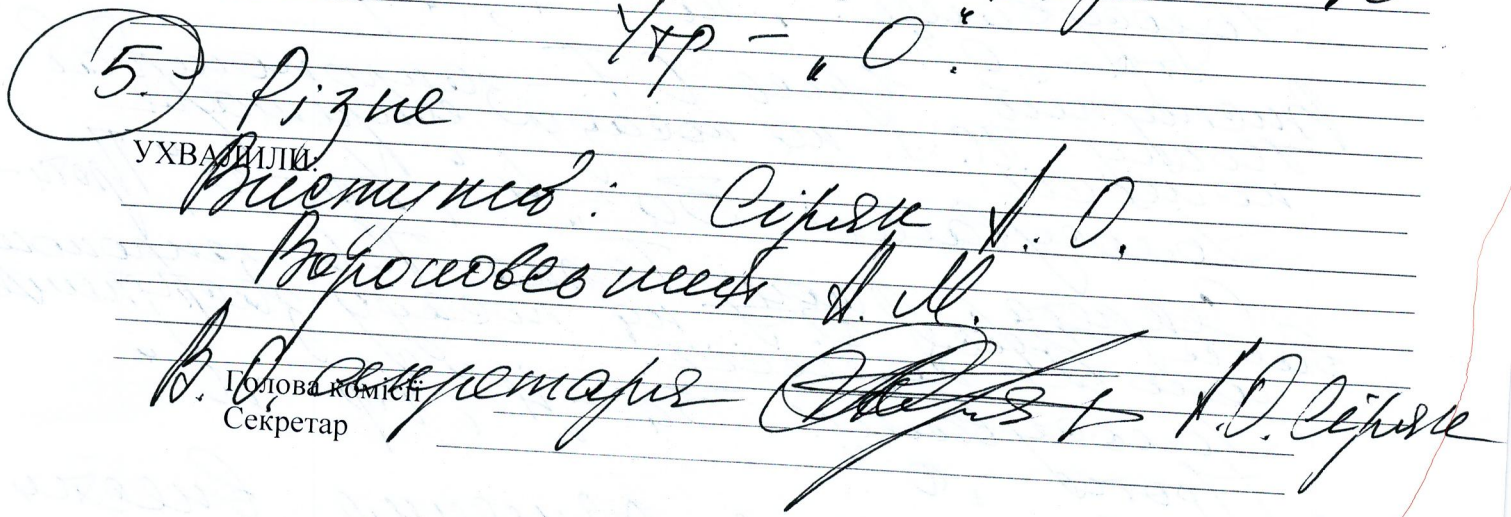 Утр – „0“.
5. Різне
УХВАЛИЛИ:
Виступив: Сіряк А. О.
Вороновський А. М.
В.О. секретаря А.О. Сіряк
Голова комісії
Секретар